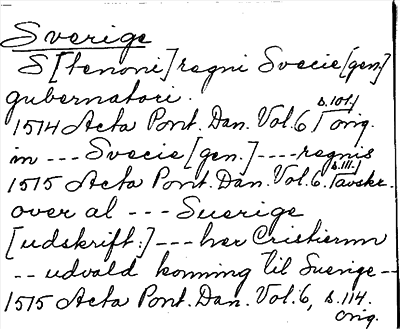 Sverige
S[tenoni] regni Svecie [gen.]
gubernatori.
1514 Acta Pont. Dan. Vol. 6 s.101.] orig.
in --- Svecie [gen.] ---- regnis
1515 Acta Pont. Dan. Vol. 6. s.111.] Tavskr.
over al --- Suerige
[udskrift:] --- her Cristiernn
-- udvald konning til Suerige --
1515 Acta Pont. Dan. Vol. 6, s. 114.
orig.